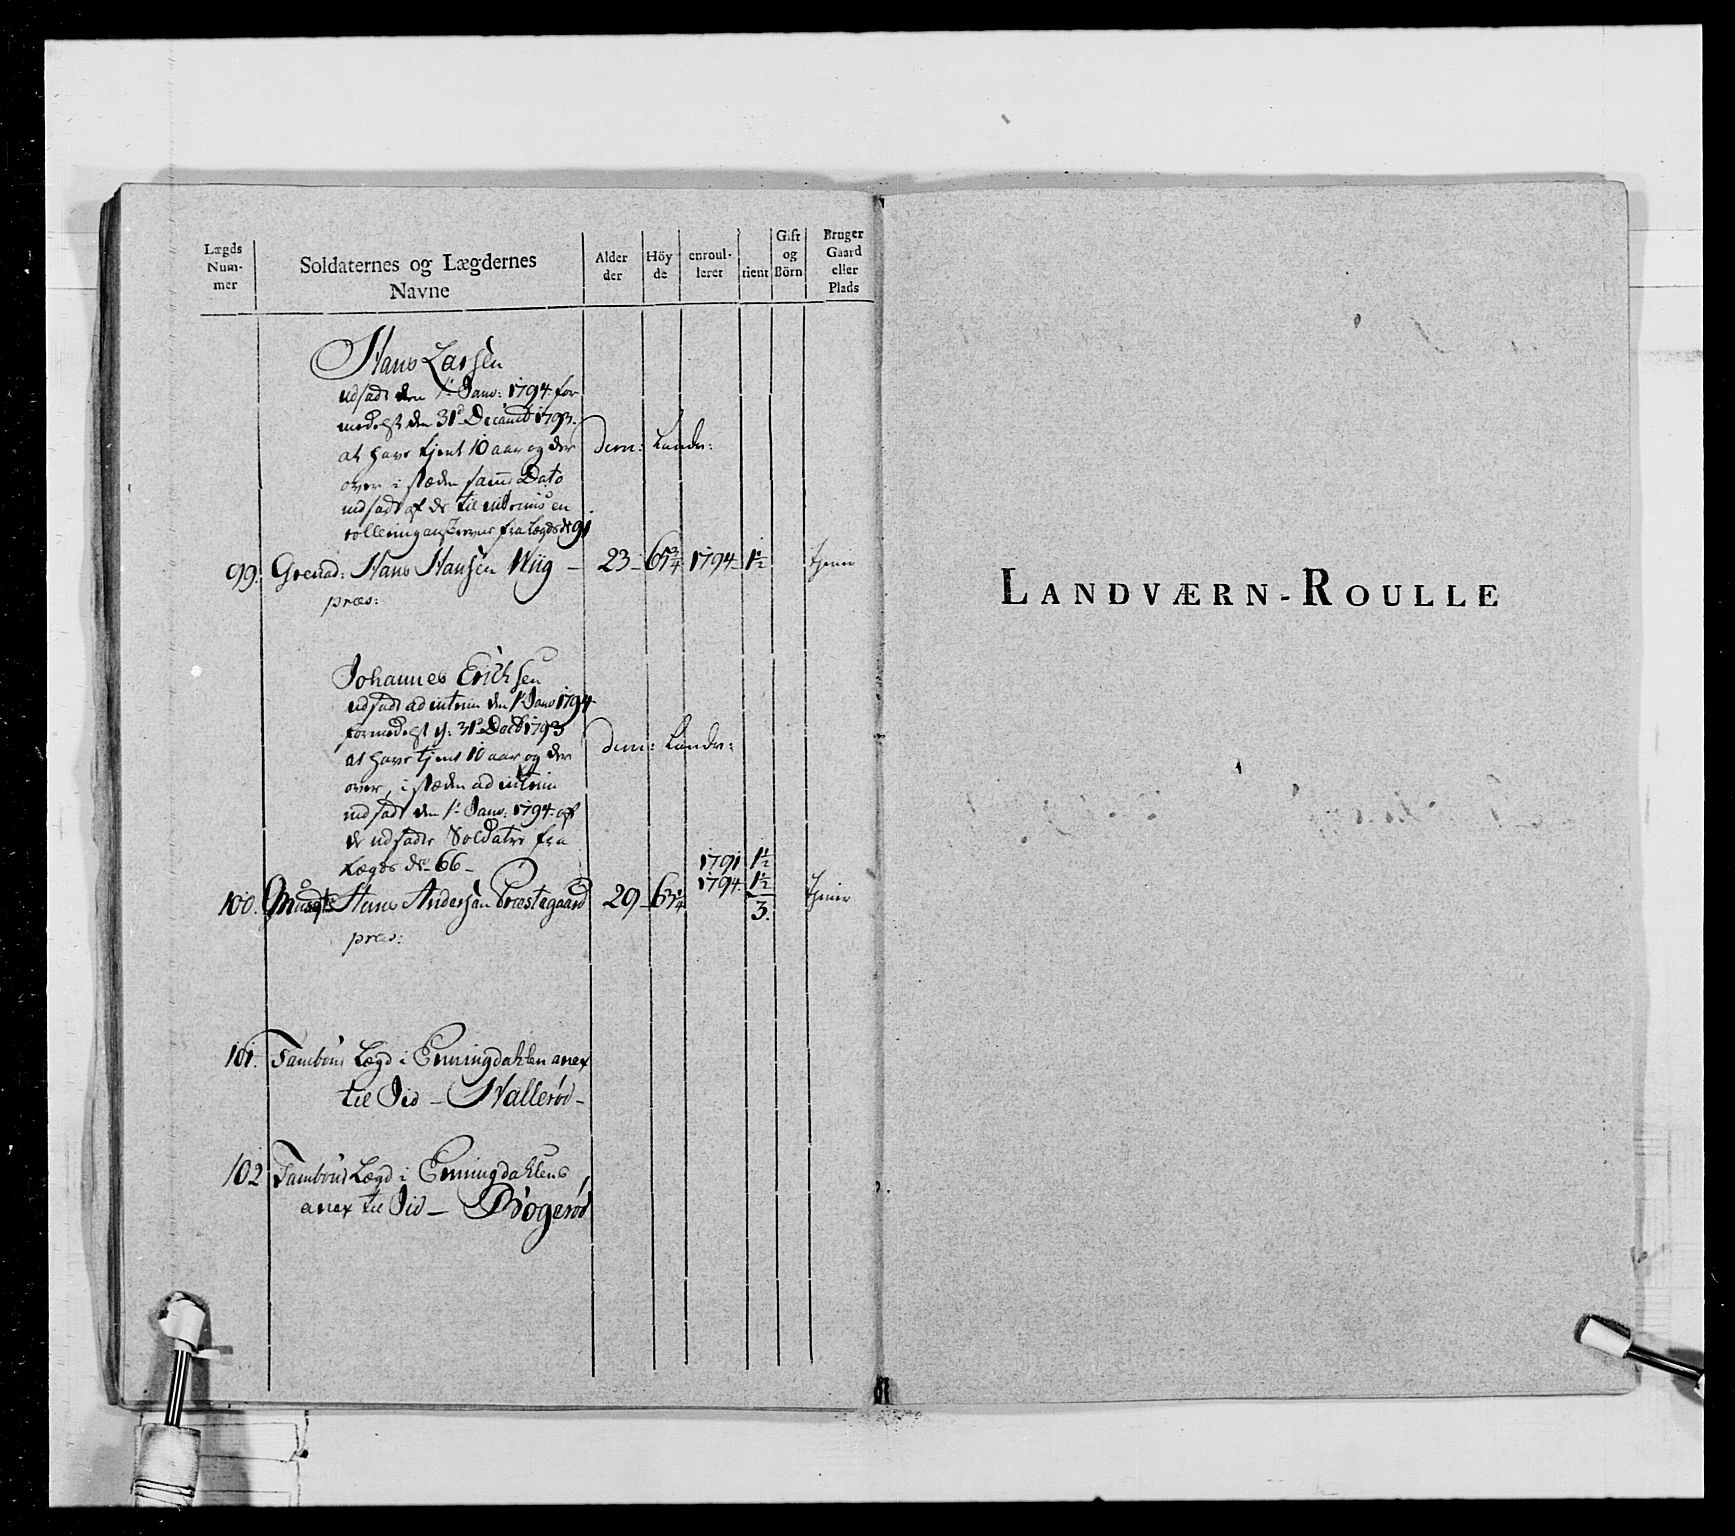 Lægds
Num-
mer
Soldaternes og Lægdernes
Navne
Alder
der
Höy
de
enroul-
leret
tient
Gift
og
Börn
Bruger
Gaard
eller
Plads
Hans Larsen
udsadt den 1t Janv: 1794 for
medelst den 31d Decemb 1793.
at have tjent 10 aar og der
over i stæden samme Dato
indsadt af de til
fra Lægd No 91
dem: Landv:
99. Grenad: Hans Hansen Wiig - 23 - 65¾ 1794 - 1½ tjener
præs:
Johannes Erichsen
udsadt ad interim den 1t Janv 1794
formedelst d: 31d Decb 1793
at have tjent 10 aar og der
over, i stæden ad interim
indsadt den 1t Janv: 1794 af
de udsadte Soldater fra
Lægds No 66 -
dem: Landv:
1791 1½
1794. 1½
100. Hans Andersen Præstegaard 29 - 65¼ 3. tjener
præs:
101. Tambour Lægd i Enningdahlen anex
til Iid - Hallerød -
102 Tambour Lægd i Enningdahlens
anex til Iid - Bogerød
LANDVÆRN-ROULLE